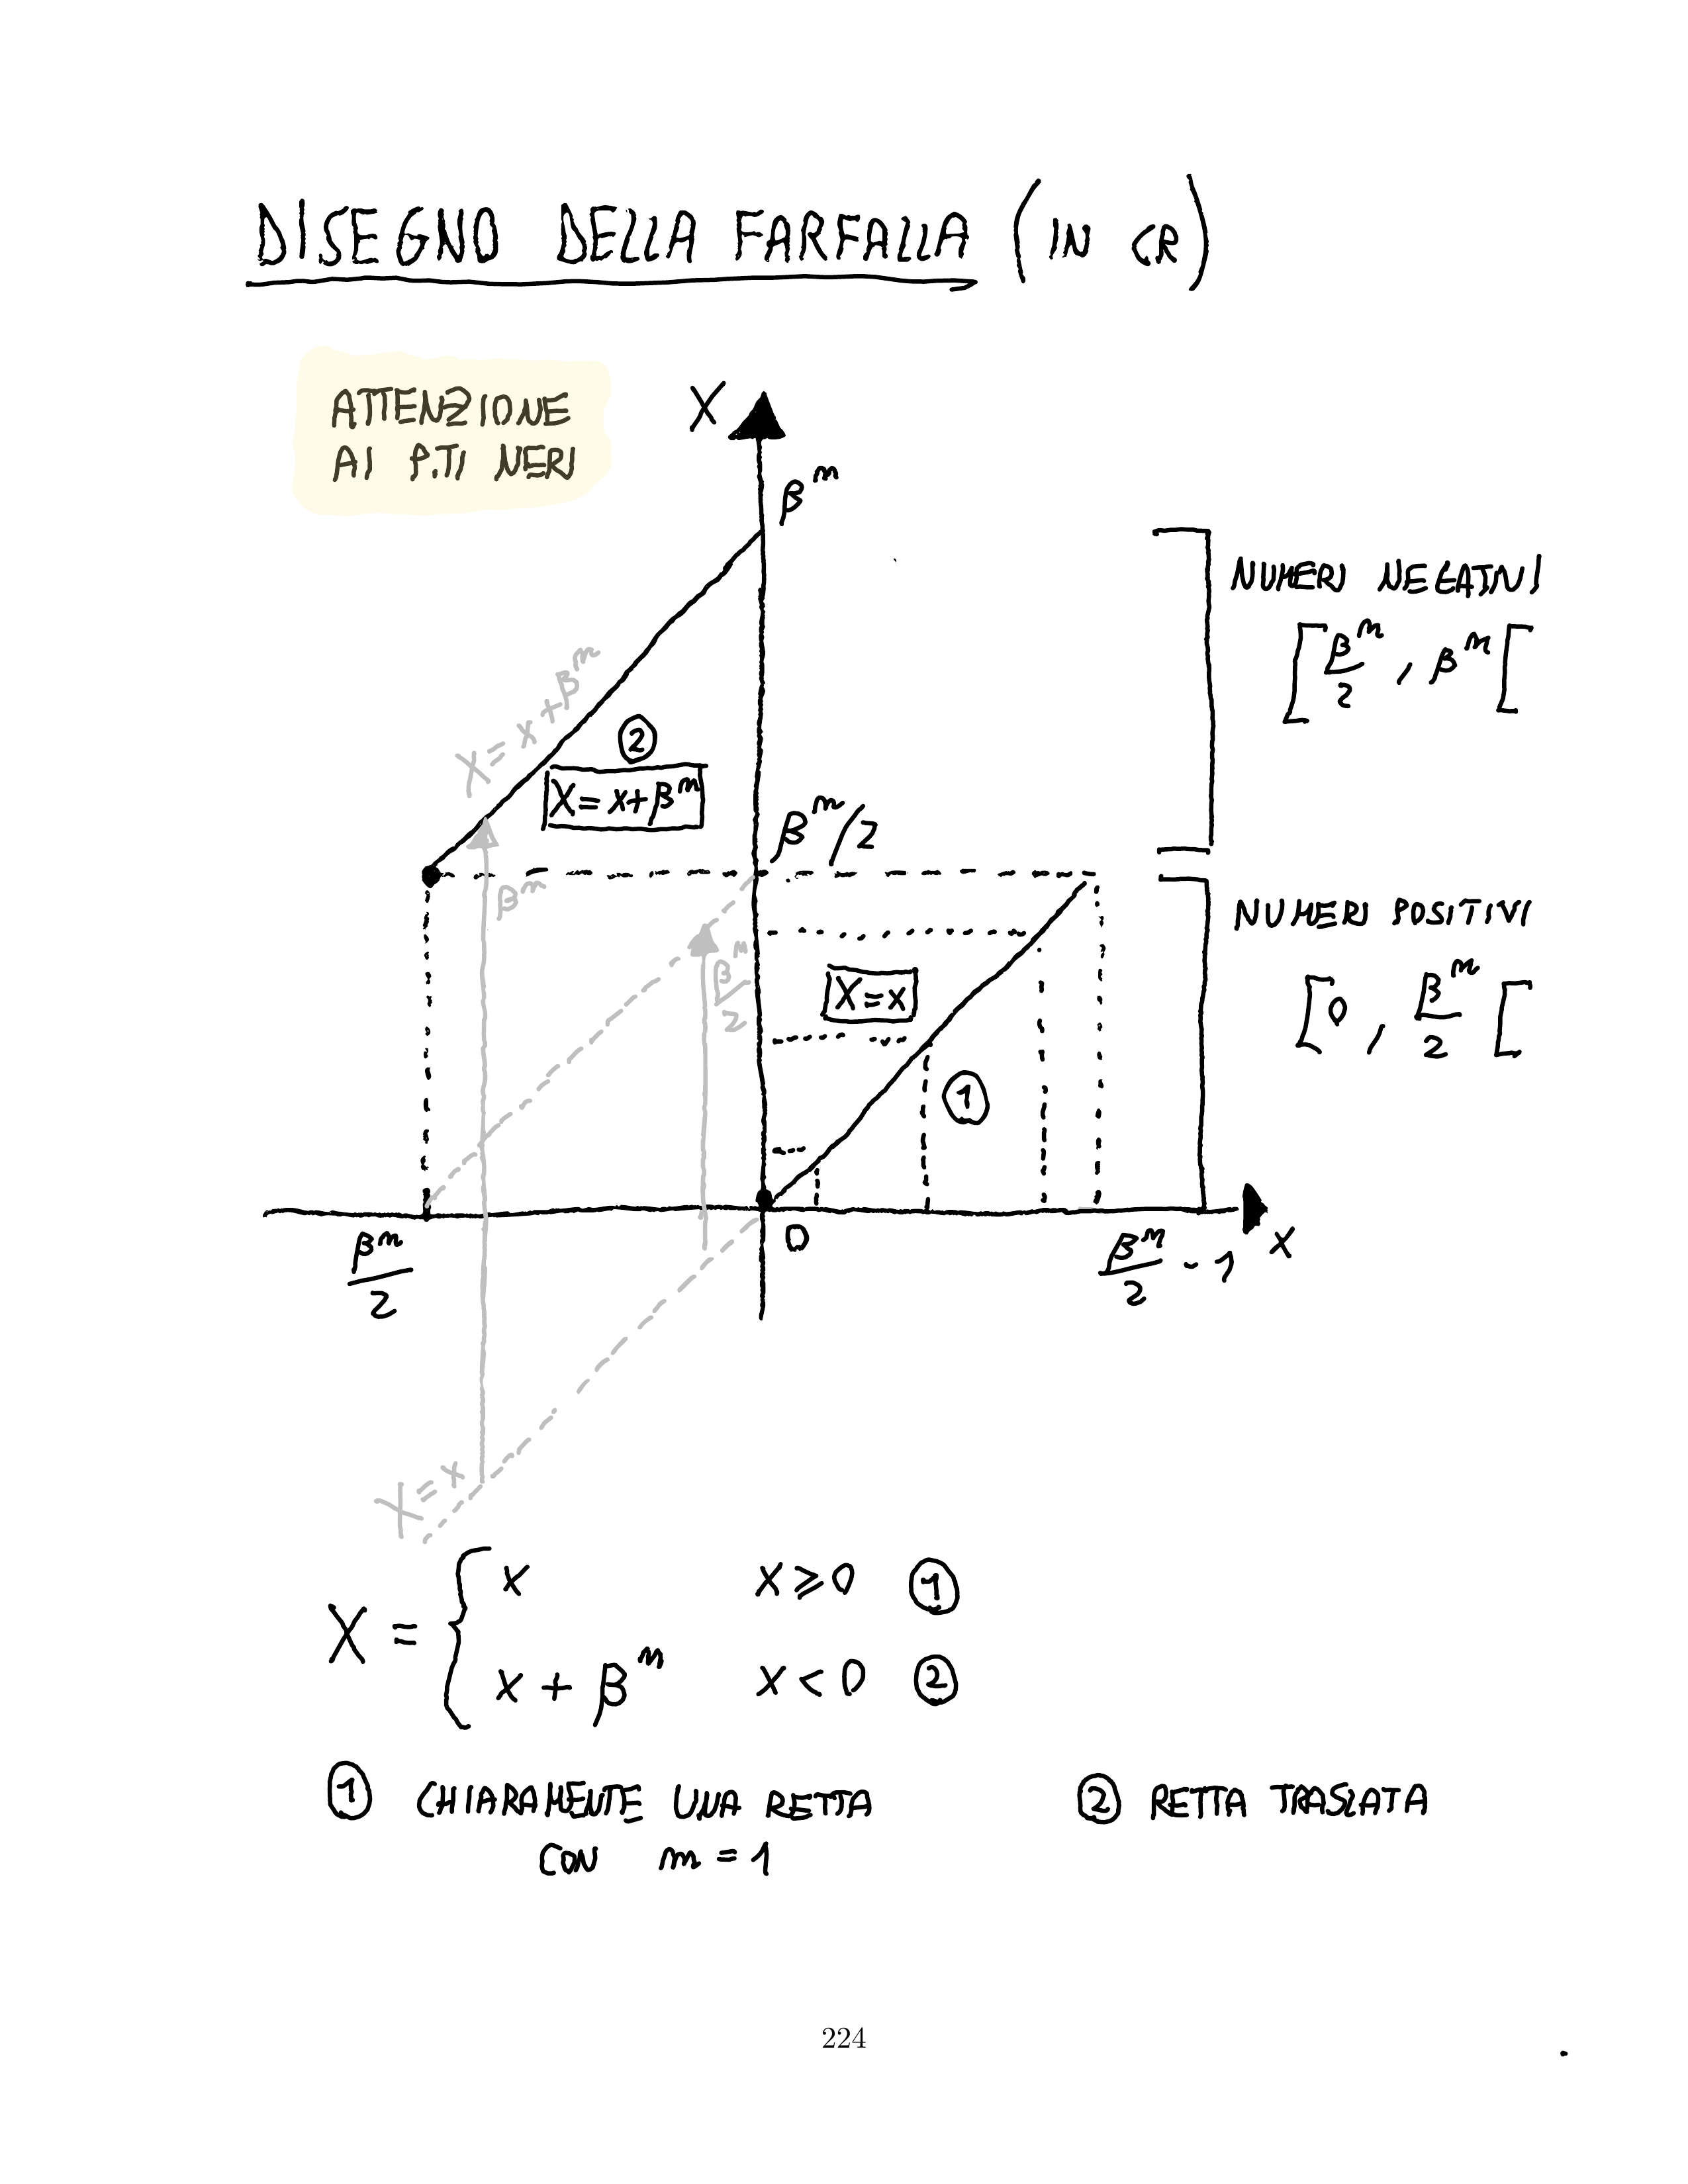 DISEGNO DELLA FARFALLA (IN CR)
ATTENZIONE
AI P.TI NERI
X
βⁿ
NUMERI NEGATIVI
[βⁿ/2, βⁿ[
X = x + βⁿ
②
X = x + βⁿ
βⁿ/2
βⁿ
NUMERI POSITIVI
[0, βⁿ/2[
βⁿ/2
X = x
①
0
βⁿ/2
βⁿ/2 - 1
x
X = x
X = { x x ⩾ 0 ①
x + βⁿ x < 0 ②
① CHIARAMENTE UNA RETTA
CON m = 1
② RETTA TRASLATA
224